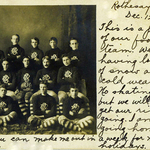 Rothesay
Dec. 1
This is a
of our f
team. We
having lo
of snow a
cold wea
No skating
but we will
get our r
going. I am
going
a week for
holidays.
you can make me out in